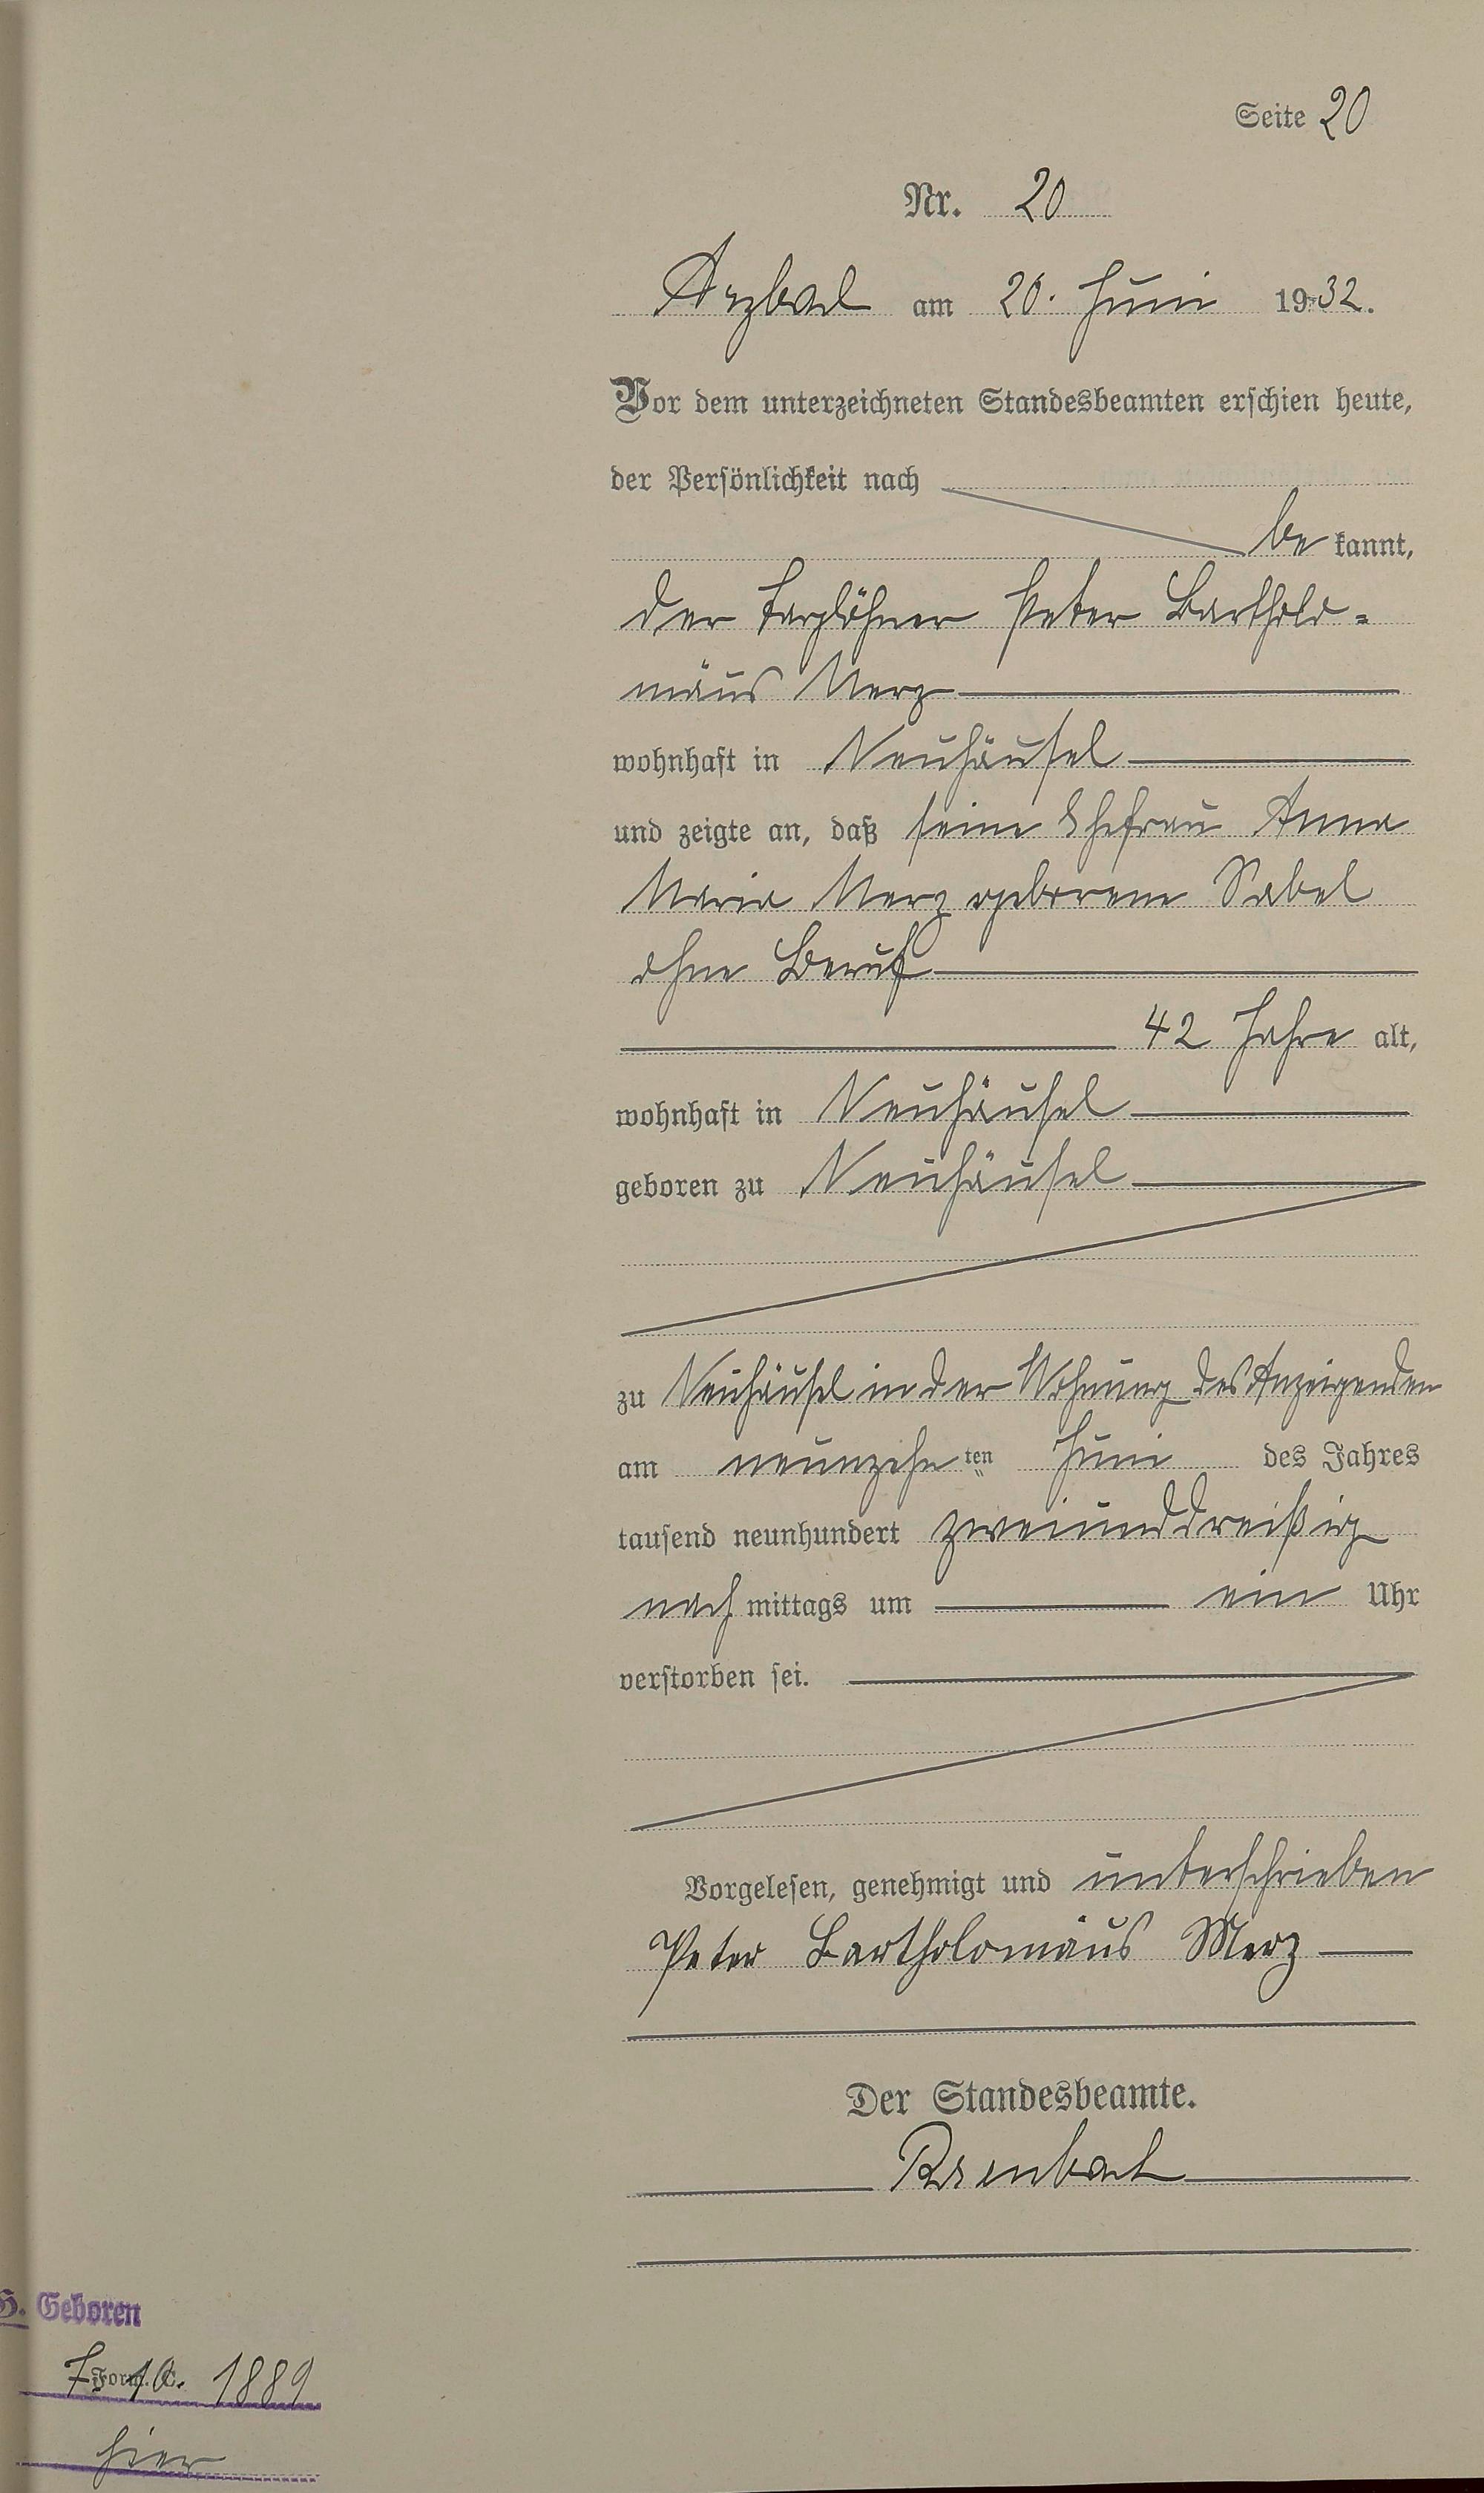 Seite 20
Nr. 20
Arzbach am 20. Juni 1932.
Vor dem unterzeichneten Standesbeamten erschien heute,
der Persönlichkeit nach
be kannt,
der Taglöhner Peter Bartholo=
mäus Merz
wohnhaft in Neuhäusel
und zeigte an, daß seine Ehefrau Anna
Maria Merz geborene Sabel
ohne Beruf
42 Jahre alt,
wohnhaft in Neuhäusel
geboren zu Neuhäusel
zu Neuhäusel in der Wohnung des Anzeigenden
am neunzehnten Juni des Jahres
tausend neunhundert zweiunddreißig
nachmittags um ein Uhr
verstorben sei.
Vorgelesen, genehmigt und unterschrieben
Peter Bartholomäus Merz
Der Standesbeamte.
H. Geboren
7. 10. 1889
Form. C.
hier